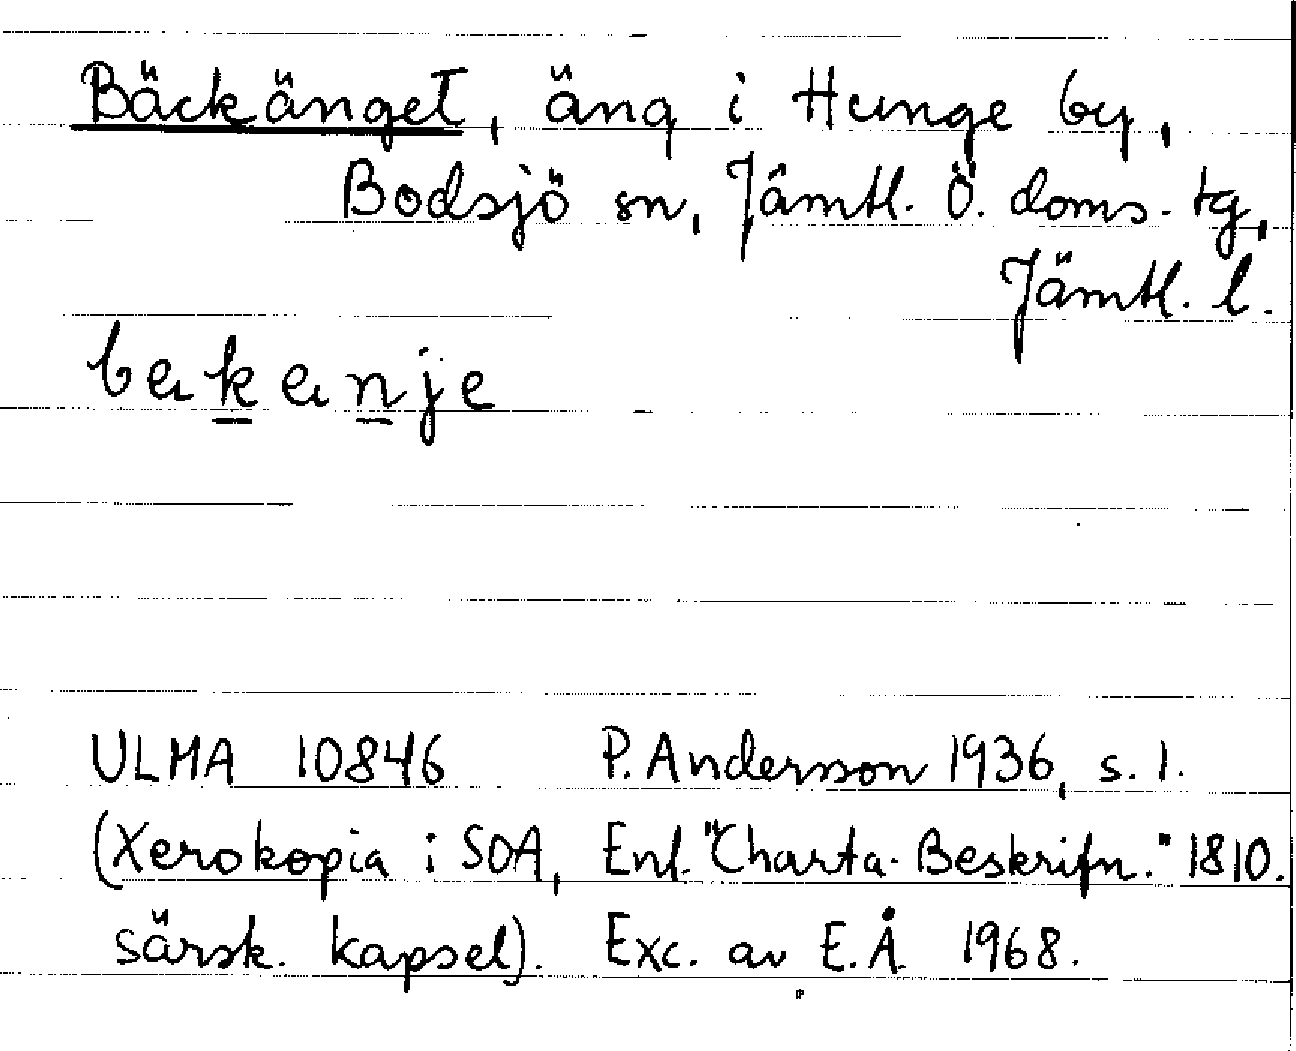 Bäckänget, äng i Hunge by,
Bodsjö sn, Jämtl. Ö. doms. tg,
Jämtl. l.
bekenje
ULMA 10846 P. Andersson 1936, s. 1.
(Xerokopia i SOA, Enl. "Charta-Beskrifn." 1810.
särsk. kapsel). Exc. av E.Å. 1968.